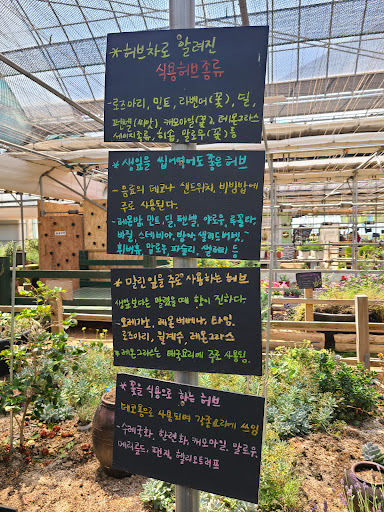 *허브차로 알려진
식용허브종류
-로즈마리, 민트, 라벤더(꽃), 딜,
펜넬(씨앗), 캐모마일(꽃), 레몬그라스
세이지종류, 히솝, 말로우(꽃) 등
*생잎을 씹어먹어도 좋은 허브
-음료의 데코나 샌드위치, 비빔밥에
주로 사용된다.
-레몬밤, 민트, 딜, 펜넬, 야로우, 루꼴라,
바질, 스테비아,
휀넬, 말로우, 파슬리, 셀러리 등
*말린 잎을 주로 사용하는 허브
생잎보다는 말렸을 때 향이 진하다.
-오레가노, 레몬버베나, 타임,
로즈마리, 월계수, 레몬그라스
*레몬그라스는 태국요리에 주로 사용됨.
*꽃을 식용으로 하는 허브
데코용으로 사용되며 각종요리에 쓰임
-수레국화, 한련화, 캐모마일, 말로우,
메리골드, 팬지, 헬리오트러프